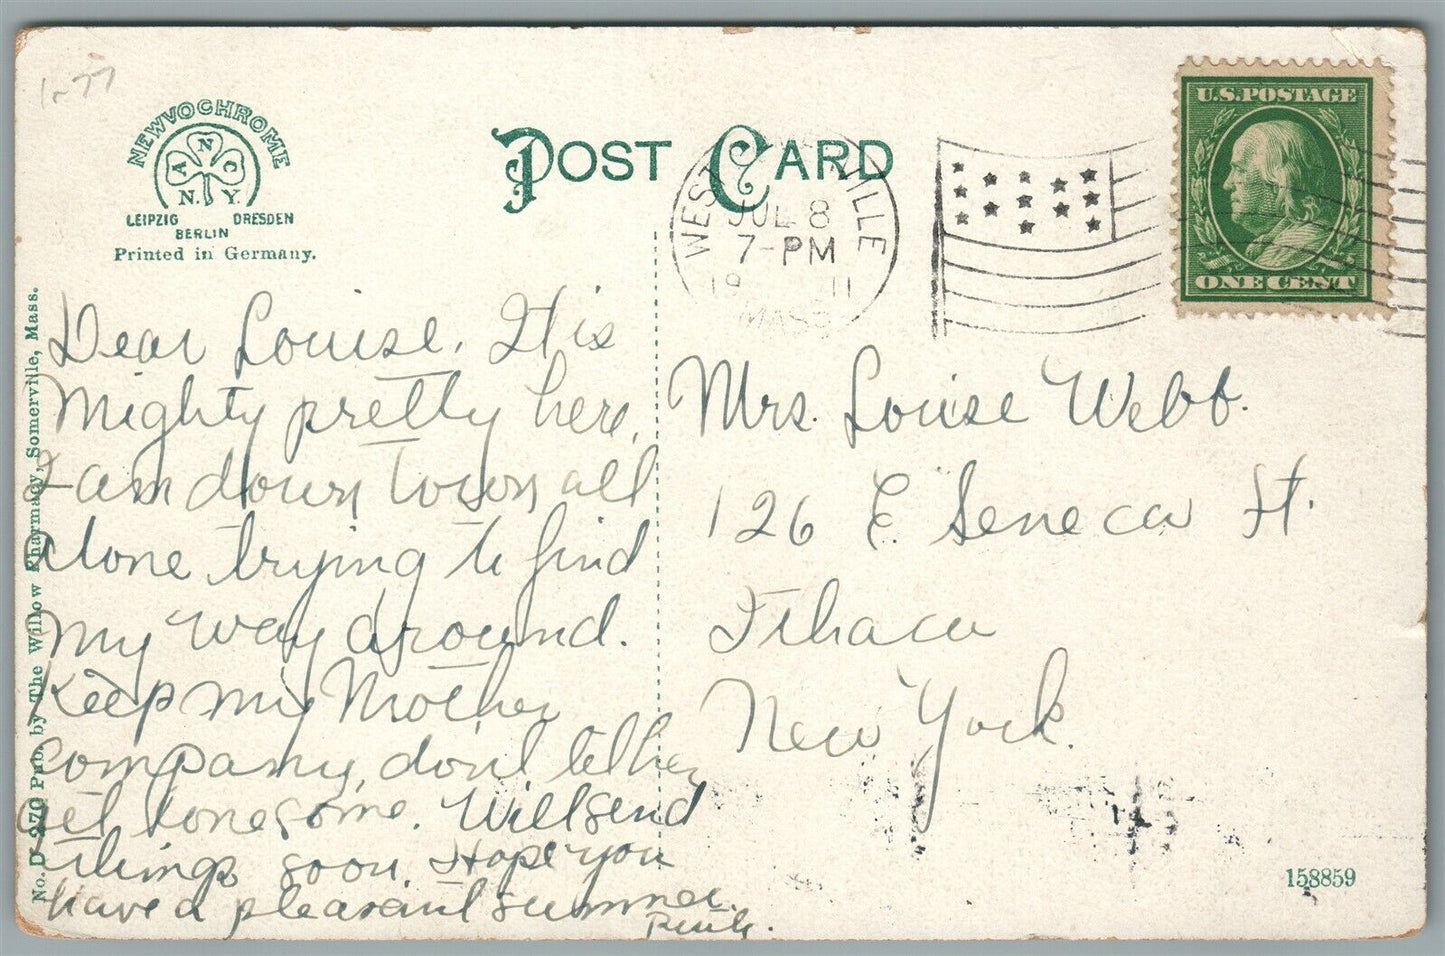 1577
NEWVOCHROME
A N C
N. Y.
LEIPZIG DRESDEN
BERLIN
Printed in Germany.
POST CARD
JUL 8
7-PM
1911
MASS
U.S. POSTAGE
ONE CENT
No. D-270 Pub. by The Willow Pharmacy, Somerville, Mass.
Dear Louise. It is
Mighty pretty here,
I am down town all
alone trying to find
my way around.
Keep my Mother
company, don't let her
get lonesome. Will send
things soon. Hope you
have a pleasant summer.
Ruth.
Mrs. Louise Webb.
126 E Seneca St.
Ithaca
New York.
158859